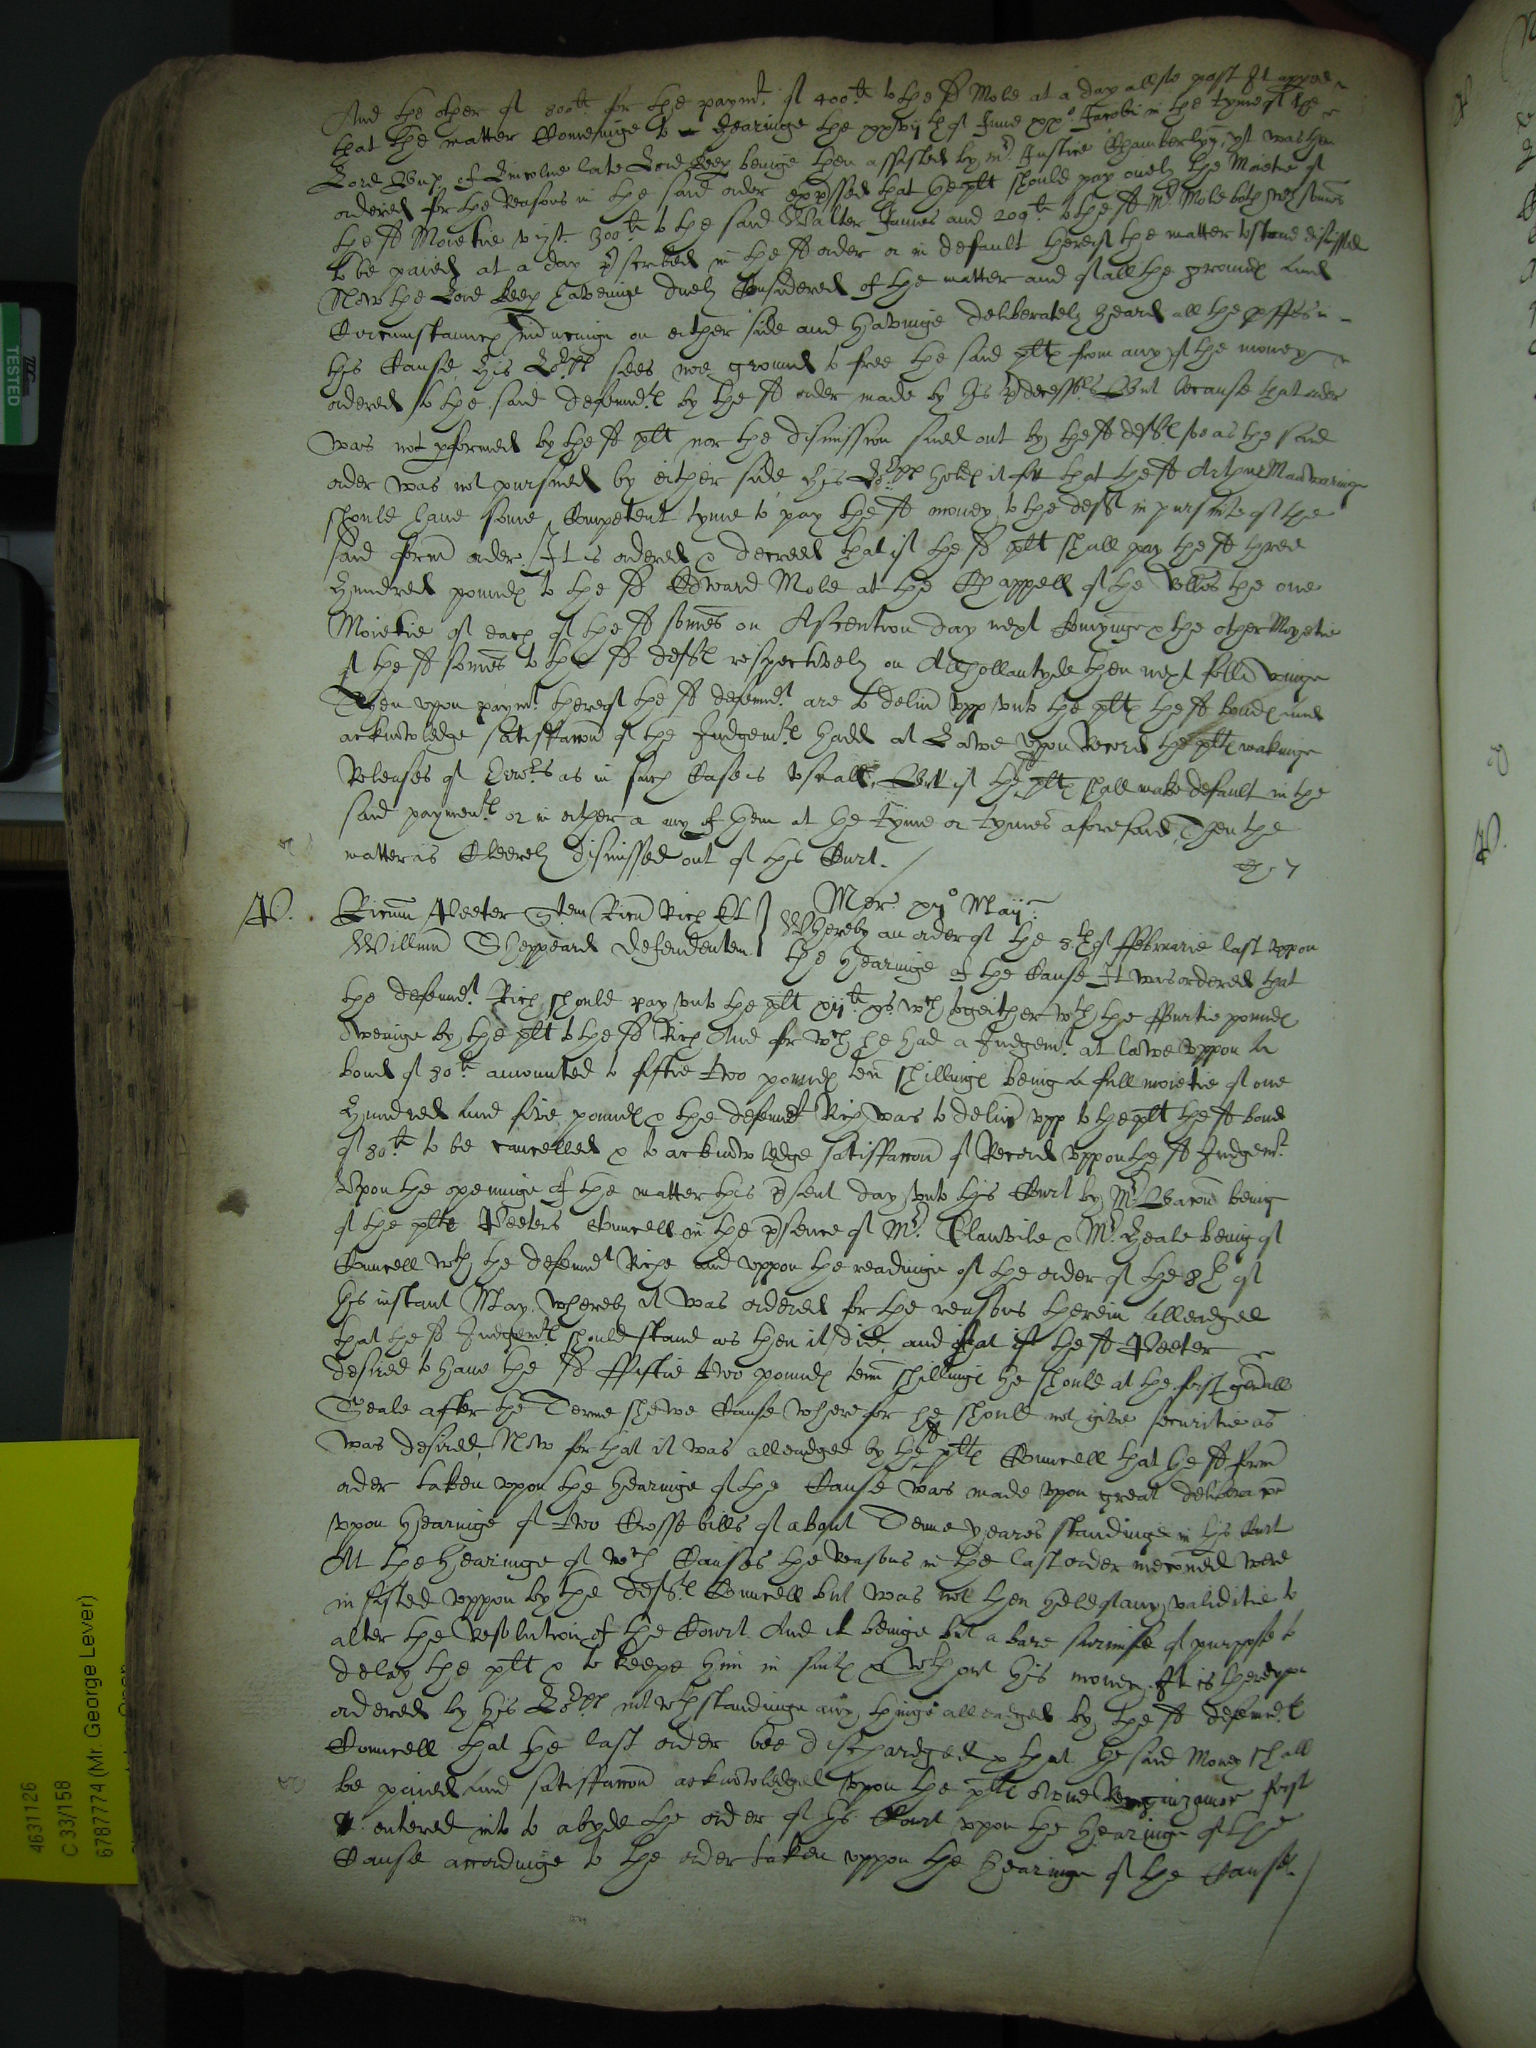 And the other of 800li for the paymt of 400li to the sd Mole at a day allso past It appear
that the matter Comeinge to hearinge the xxvijth of June xxo Jacobi in the tyme of the
Lord Bisp of Lincolne late Lord Keep beinge then assisted by mr Justice Chamberlyn, yt was then
ordered for the Reasons in the said order exprssed that the plt should pay onely the Moietie of
the sd Moietie vizt 300li to the said Walter James and 200li to the sd Mr Mole both wch somes
to be paied at a day prscribed in the sd order or in default thereof the matter to stand dismissed
Now the Lord Keep haveinge duely Considered of the matter and of all the grounds and
Circumstances inducinge on either side and havinge deliberately heard all the pffes in
this Cause his Lopp sees noe ground to free the said plts from any of the moneys
ordered to the said defendts by the sd order made by his prdecessor But because that order
was not pformed by the sd plt nor the dismission sued out by the sd deffts soe as the said
order was not pursued by either side his Lopp holds it fitt that the sd Arthur Manwaringe
should have some Competent tyme to pay the sd money to the defft in pursuite of the
said form order. It is ordered & decreed that if the sd plt shall pay the sd three
hundred pounds to the sd Edward Mole at the Chappell of the Rolles the one
Moietie of each of the sd somes on Ascention day next Comynge & the other Moyetie
of the sd somes to the sd deffts respectively on Alhollantyde then next followinge
Then upon paymt thereof the sd defendts are to deliver upp unto the plts the sd bonds and
acknowledge satisfaccon of the Judgemts hadd at Lawe upon Record the plts makinge
Releases of Errors as in such Case is usuall. But if the sd plts shall make default in the
said payments or in either or any of them at the tyme or tymes aforesaid, Then the
matter is Cleerely dismissed out of this Court.
P. Ricum Peeter Quem Ricu Rich et
Willimu Sheppeard defendentem
Mer. xijo Maij
Whereby an order of the 8th of ffebruarie last uppon
the hearinge of the Cause It was ordered that
the defendt Rich should pay unto the plt xijli xs wch togeither wth the ffourtie pounds
oweinge by the plt to the sd Rich And for wch he had a Judgemt at lawe uppon a
bond of 80li amounted to fiftie two pounds tenn shillings being a full moietie of one
hundred and five pounds & the defendt Rich was to deliver upp to the plt the sd bond
of 80li to be cancelled & to acknowledge satisfaccon of Record uppon the sd Judgemt
Upon the openinge of the matter this prsent day unto this Court by Mr Bacon being
of the plts Peeters Councell in the prsence of Mr. Glanvile & Mr. Heale being of
Councell wth the defendt Riche and uppon the readinge of the order of the 8th of
this instant May. whereby it was ordered for the reasons therein alleadged
that the sd Judgemts should stand as then it did, and that if the sd Peeter
desired to have the sd ffiftie two pounds tenn shillings he should at the first generall
Seale after the Terme shewe Cause wherefor he should not give securitie as
was desired. Now for that it was alleadged by the sd plts Councell that the sd form
order taken upon the hearinge of the Cause was made upon great deliberacon
upon hearinge of two Crosse bills of about Tenne yeares standinge in this Court
At the hearinge of wch Causes the Reasons in the last order mencioned were
insisted uppon by the deffts Councell but was not then held of any validitie to
alter the Resolution of the Court And it beinge but a bare surmise of purpose to
delay the plt & to keepe him in suite & wthout his money. It is thereupon
ordered by his Lopp notwthstandinge any thinge alleadged by the sd defendts
Councell that the last order bee dischardged & that the said Money shall
be paied and satisfaccon acknowledged upon the plts owne Recognizance first
entered into to abyde the order of this Court upon the hearinge of the
Cause accordinge to the order taken uppon the hearinge of the Cause.
TESTED
4631126
C 33/158
6787774 (Mr. George Lever)